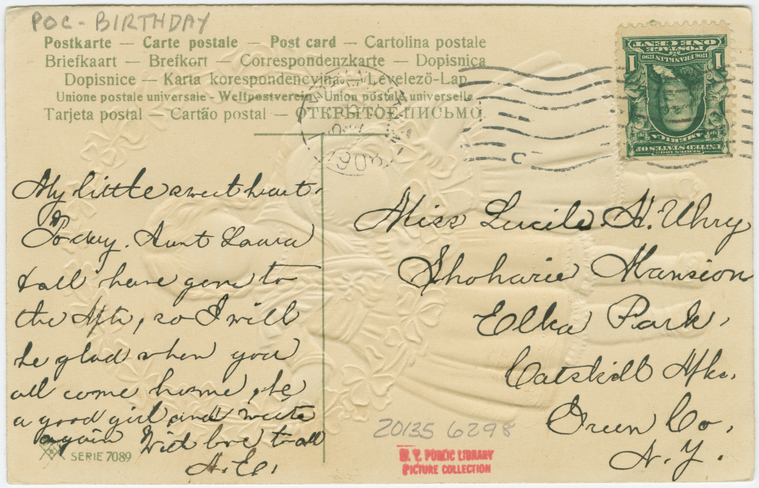 POC - BIRTHDAY
Postkarte — Carte postale — Post card — Cartolina postale
Briefkaart — Brefkort — Correspondenzkarte — Dopisnica
Dopisnice — Karta korespondencyjna — Levelező-Lap
Unione postale universale - Weltpostverein - Union postale universelle
Tarjeta postal — Cartão postal — ОТКРЫТОЕ ПИСЬМО
1908
UNITED STATES OF
AMERICA
1706 FRANKLIN 1790
1 POSTAGE 1
ONE CENT
My little sweetheart.
Aunt Laura
& all have gone to
the Mth, so I will
be glad when you
all come home, be
a good girl and write
again With love to all
Miss Lucile H. Uhry
Shoharie Mansion
Elka Park,
Catskill Mts.
Green Co.
N. Y.
SERIE 7089
20135 6298
N. Y. PUBLIC LIBRARY
PICTURE COLLECTION